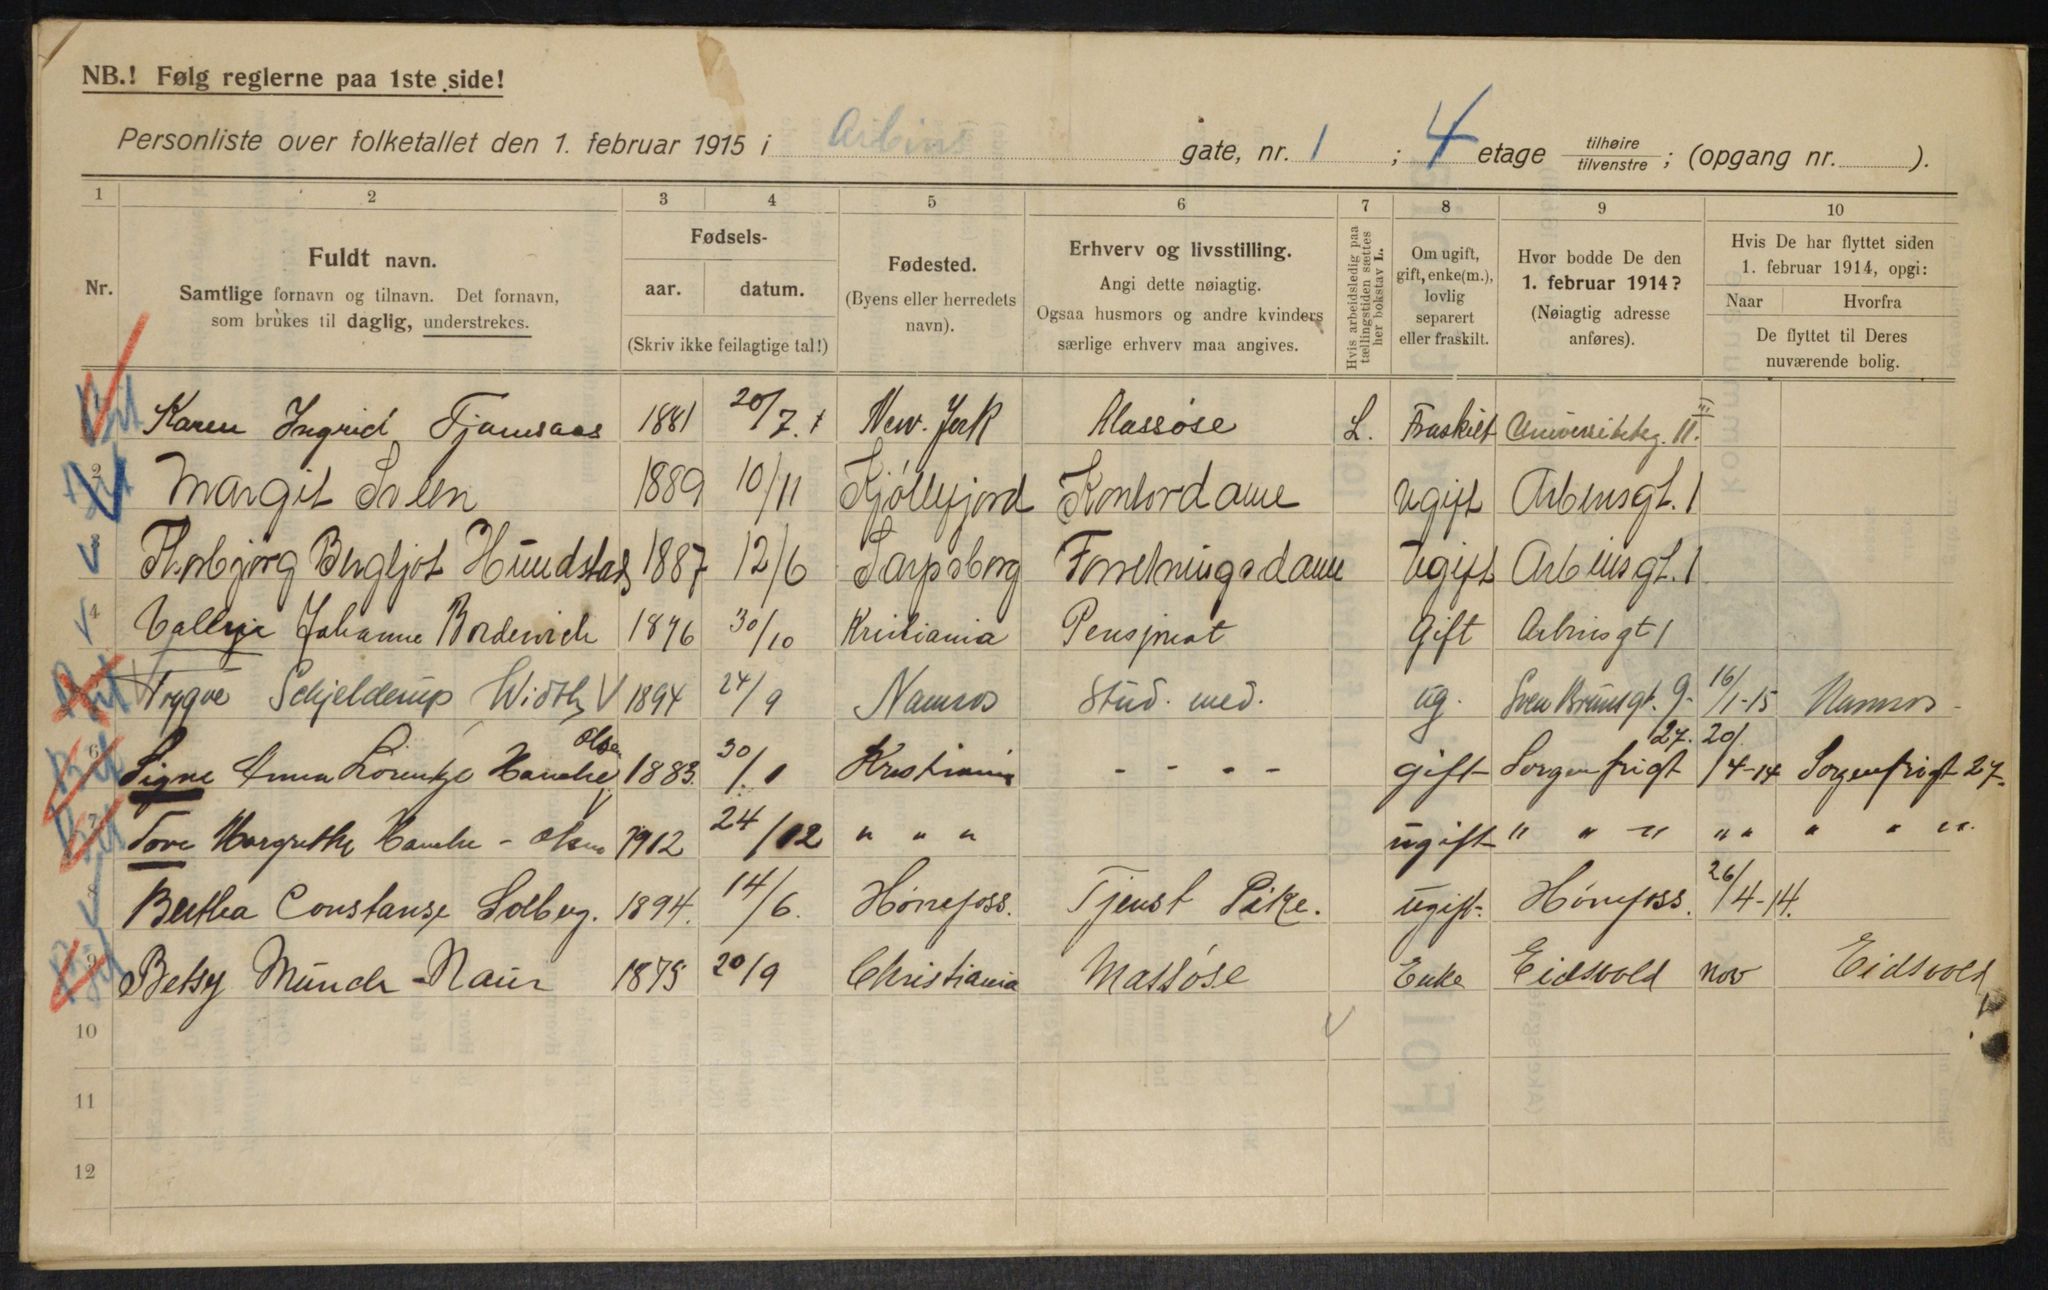 NB.! Følg reglerne paa 1ste side!
Personliste over folketallet den 1. februar 1915 i Arbins gate, nr. 1 ; 4 etage tilhøire / tilvenstre ; (opgang nr. ).
1 2 3 4 5 6 7 8 9 10
Nr.
Fuldt navn.
Samtlige fornavn og tilnavn. Det fornavn,
som brukes til daglig, understrekes.
Fødsels-
aar. datum.
(Skriv ikke feilagtige tal!)
Fødested.
(Byens eller herredets
navn).
Erhverv og livsstilling.
Angi dette nøiagtig.
Ogsaa husmors og andre kvinders
særlige erhverv maa angives.
Hvis arbeidsledig paa
tællingstiden sættes
her bokstav L.
Om ugift,
gift, enke(m.),
lovlig
separert
eller fraskilt.
Hvor bodde De den
1. februar 1914?
(Nøiagtig adresse
anføres).
Hvis De har flyttet siden
1. februar 1914, opgi:
Naar Hvorfra
De flyttet til Deres
nuværende bolig.
1 Karen Ingrid Fjamsaas 1881 20/7. New. York Massøse L. Fraskilt Universitetsg. 11. III
2 Margit Solem 1889 10/11 Kjøllefjord Kontordame Ugift Arbinsgt. 1
3 Thorbjørg Bergljot Hundstad 1887 12/6 Sarpsborg Forretningsdame Ugift Arbinsgt. 1
4 Johanne Bordewich 1876 30/10 Kristiania Pensjonat Gift Arbinsgt 1
Trygve Schjelderup Width 1894 24/9 Namsos Stud. med. ug. Sven Brunsgt. 9. 16/1-15 Namsos
6 Signe Anna Lorentze Hanche Olsen 1883. 30/1 Kristiania - - - - gift Sorgenfrigt 27. 20/4-14 Sorgenfrigt 27.
7 Tove Margrethe Hanche - Olsen 1912 24/12 " " " ugift " " " " " " " "
8 Bertha Constanse Solberg. 1894. 14/6. Hønefoss. Tjenst Pike. ugift. Hønefoss. 26/4-14.
9 Betsy Münch-Naur 1875 20/9 Christiania Massøse Enke Eidsvold nov Eidsvold
10
11
12